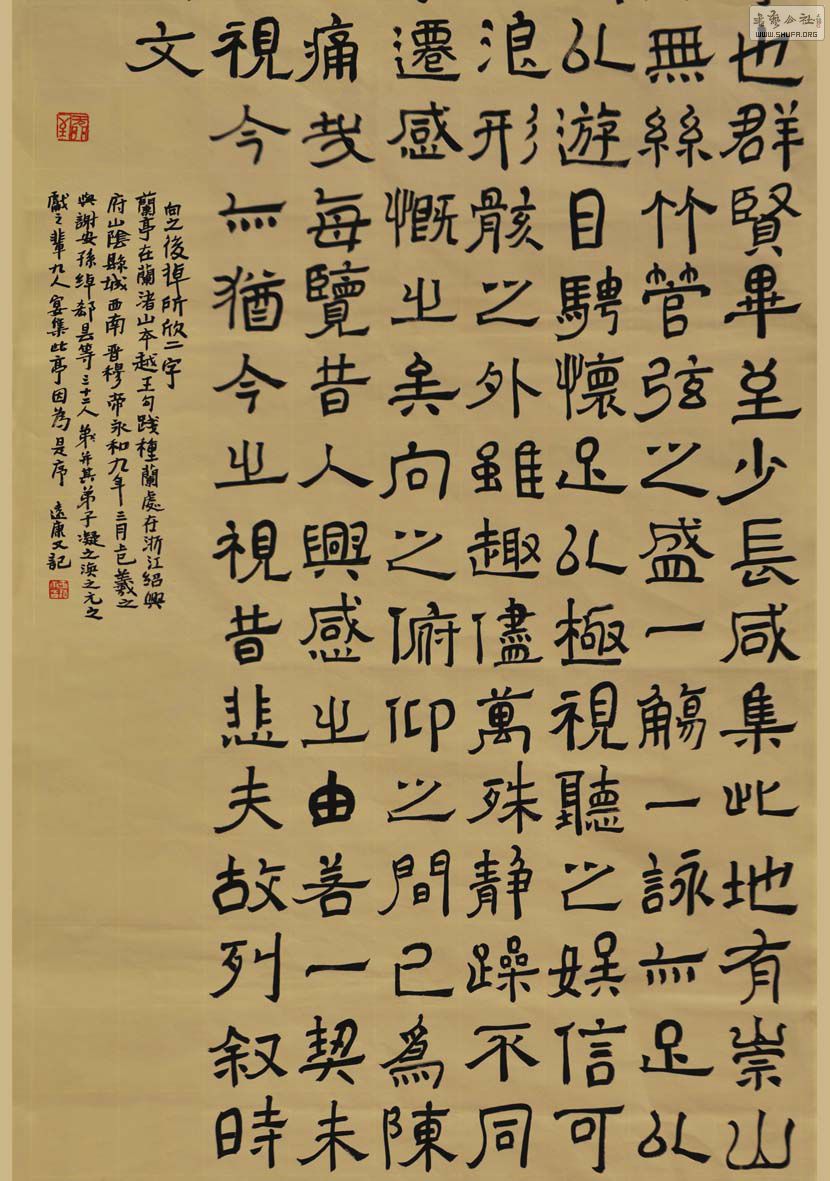 也群賢畢至少長咸集此地有崇山
無絲竹管弦之盛一觴一詠亦足以
以遊目騁懷足以極視聽之娛信可
浪形骸之外雖趣儘萬殊静躁不同
遷感慨之矣向之俯仰之間已為陳
痛哉每覽昔人興感之由善一契未
視今亦猶今之視昔悲夫故列叙時
文
向之後掉所欣二字
蘭亭在蘭渚山本越王勾踐種蘭處在浙江紹興
府山陰縣城西南晋穆帝永和九年三月上巳羲之
與謝安孫綽郗曇等三十二人并其弟子凝之涣之元之
獻之輩九人宴集此亭因為是序 遠康又記
WWW.SHUFA.ORG